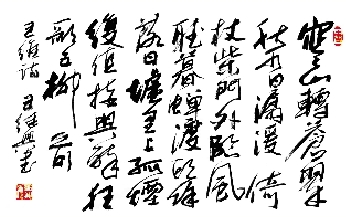 寒山轉蒼翠
秋水日潺湲倚
杖柴門外臨風
聽暮蟬渡頭餘
落日墟里上孤煙
復值接輿醉狂
歌五柳前
王維詩 王興書